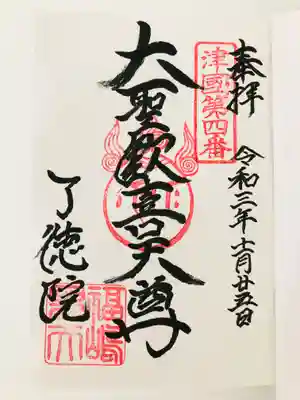 奉拝
津國第四番
令和三年十一月廿五日
大聖歡喜天尊
了徳院
福嶋
聖天